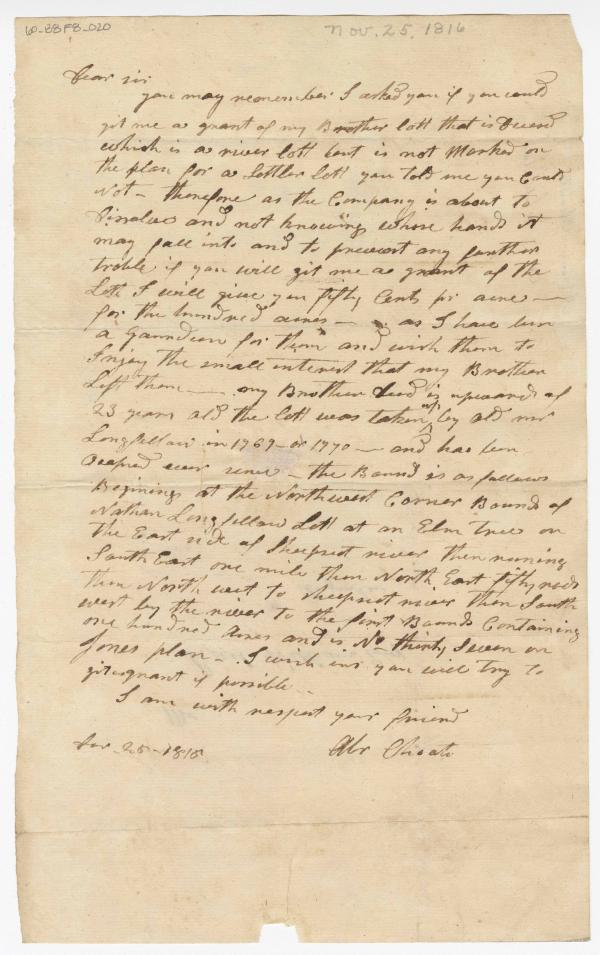 60-B8F8-020
Nov. 25, 1816
Dear sir
you may remember I asked you if you could
git me a grant of my Brother lott that is Deceasd
which is a river lott but is not Marked on
the plan for a Settler Lott you told me you Could
Not - therefore as the Company is about to
Disolve and not knowing whose hands it
may fall into and to prevent any further
troble if you will git me a grant of the
Lott I will give you fifty Cents pr acre -
for the hundred acres - as I have ben
a Gaurdean for them and wish them to
Injoy the small interest that my Brother
Left them - my Brother Deed is upwards of
23 years old the lott was taken up by old mr
Longfellow in 1769 - or 1770 - and has ben
ever since - the Bound is as follows
Begining at the Northwest Corner Bounds of
Nathan Longfellow Lott at an Elm Tree on
the East side of Sheepsot river then runing
South East one mile then North East fifty rods
then North west to sheepsot river then South
west by the river to the first Bounds Containing
one hundred Acres and is No thirty Seven on
Jones plan - I wish you will try to
git a grant if possible -
I am with respect your friend
25 - 1816
Abr Choate